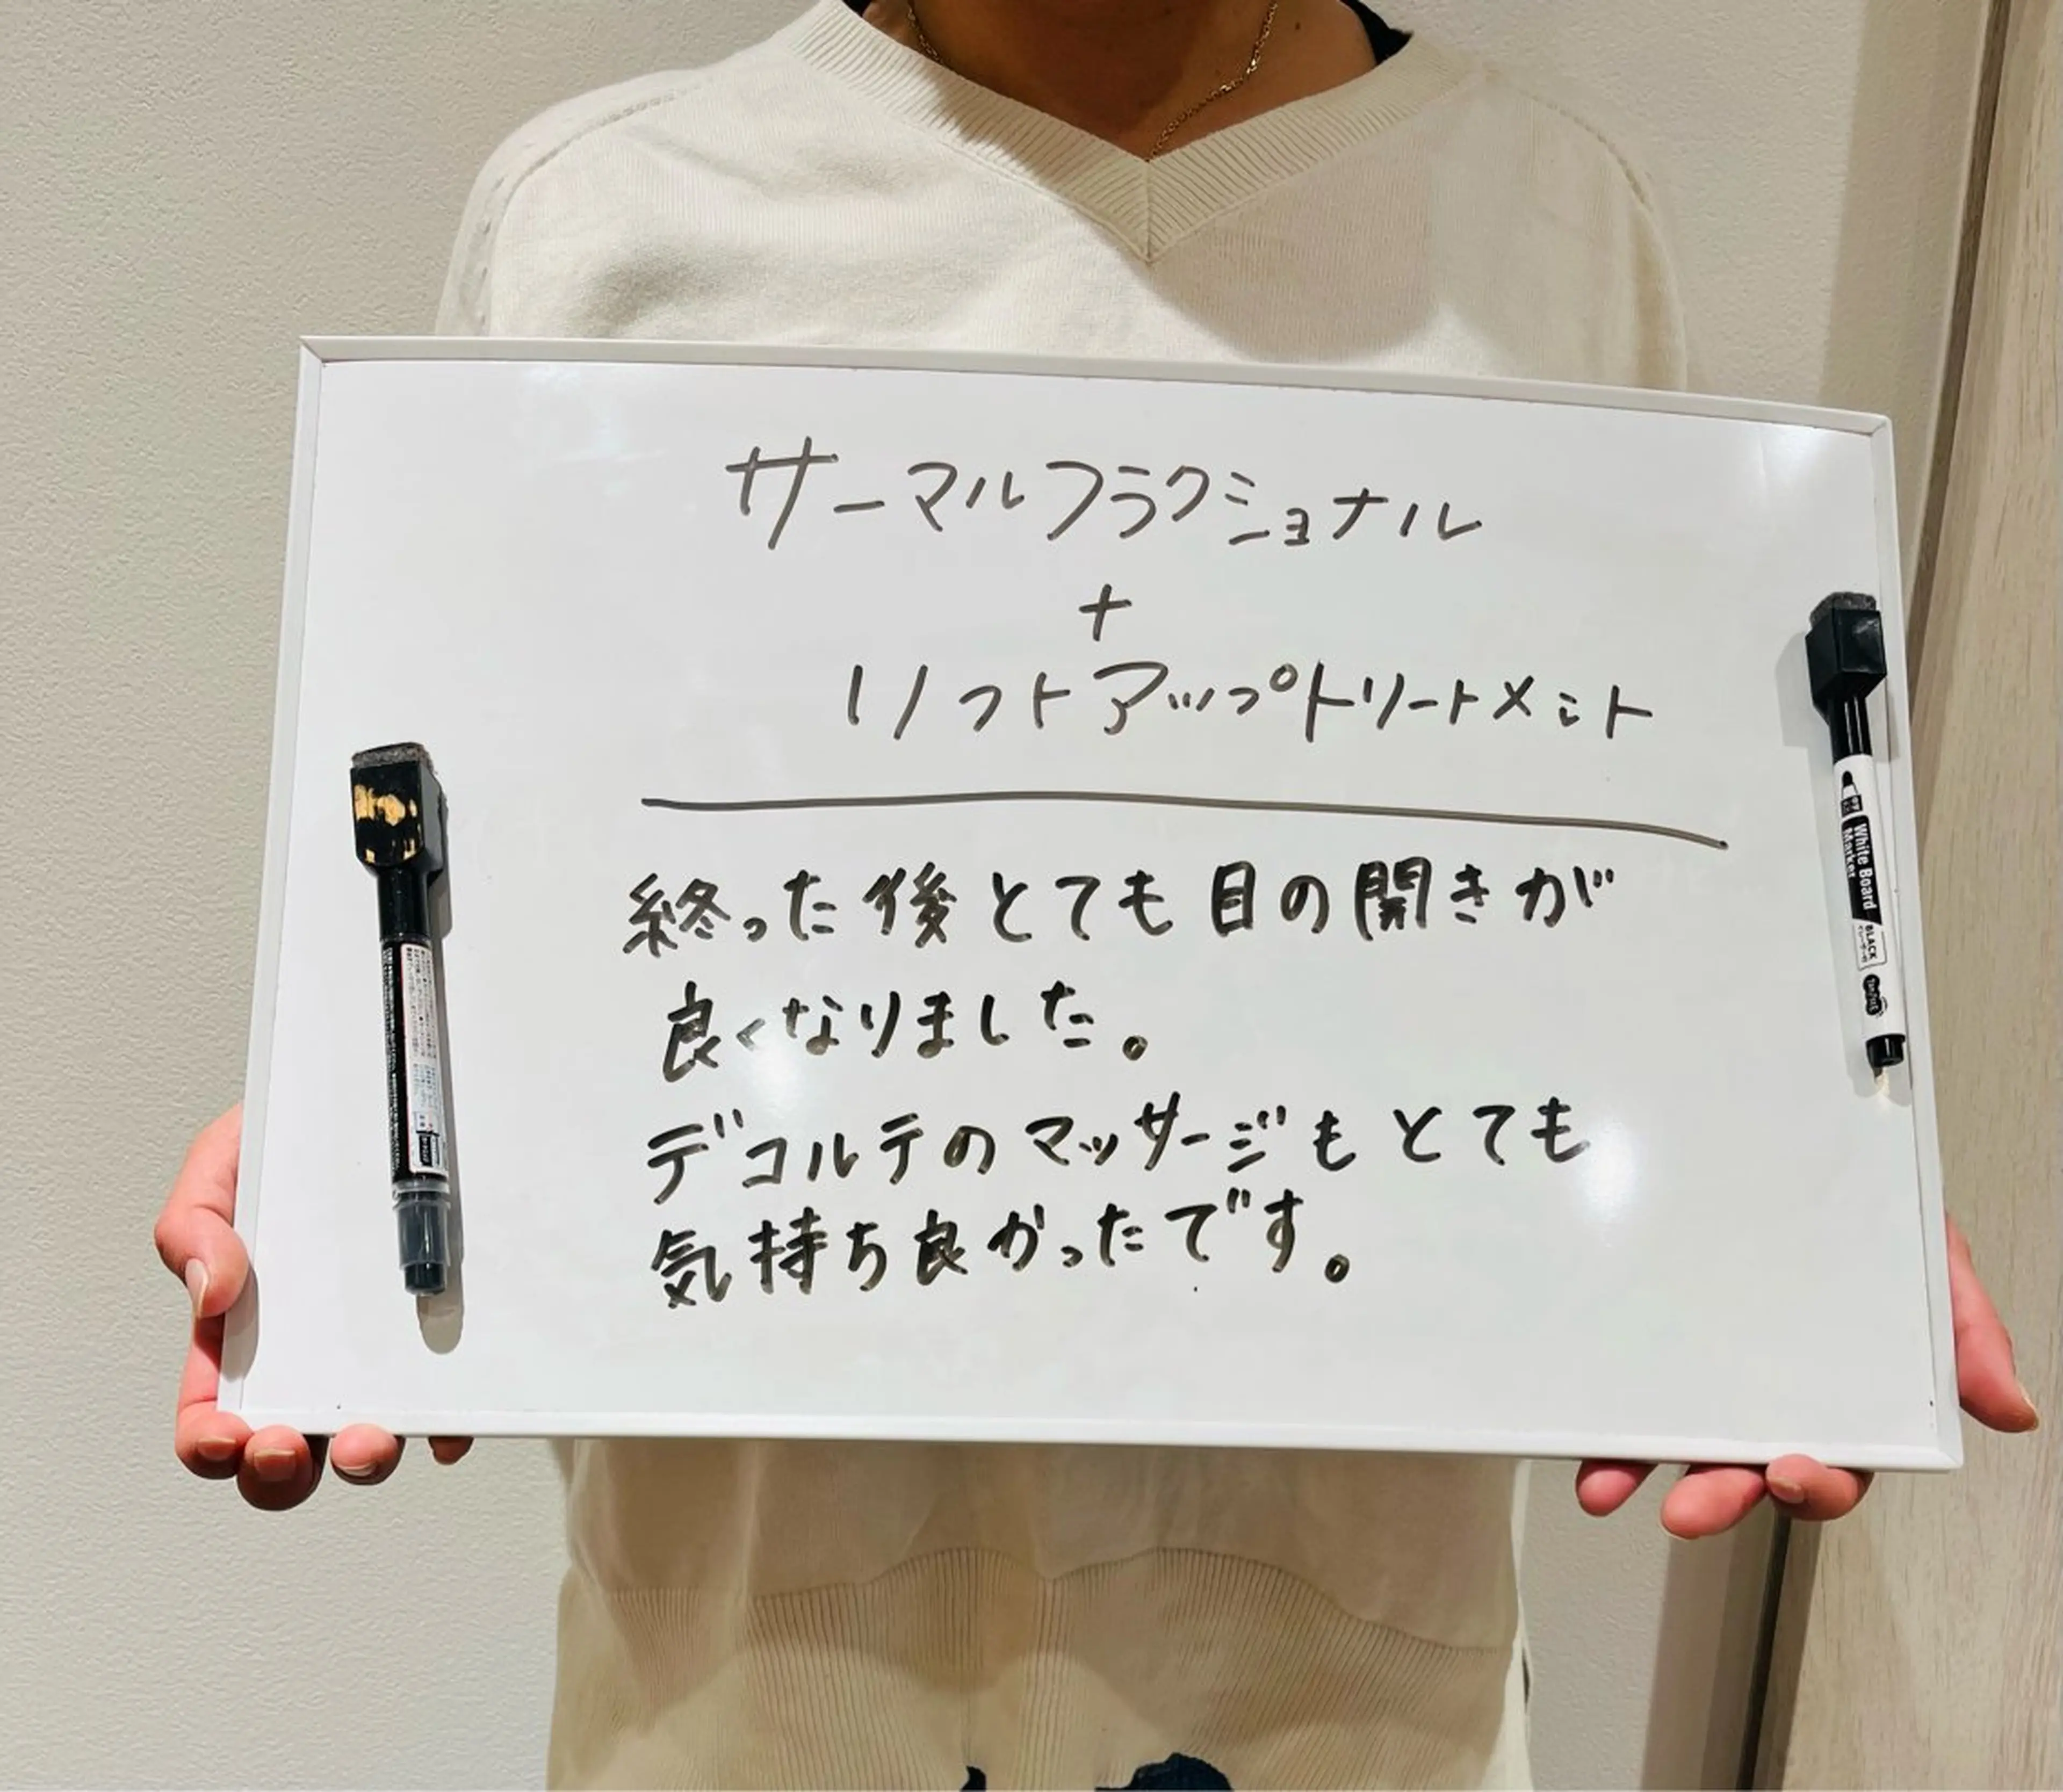 サーマルフラクショナル
+
リフトアップトリートメント
終った後とても目の開きが
良くなりました。
デコルテのマッサージもとても
気持ち良かったです。
White Board
Marker
BLACK